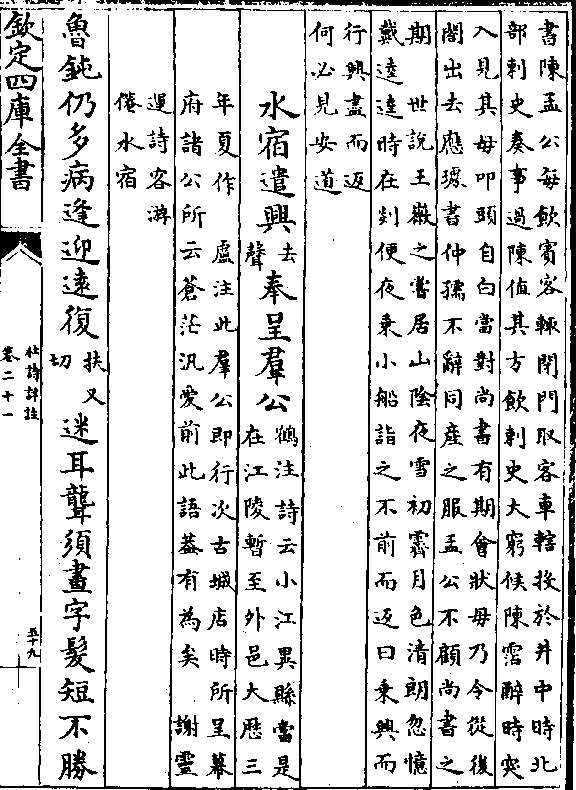 書陳孟公每飲賓客輒閉門取客車轄投於井中時北
部刺史奏事過陳值其方飲刺史大窮候陳霑醉時突
入見其母叩頭自白當對尚書有期會狀母乃令從後
閤出去應璩書仲孺不辭同産之服孟公不顧尚書之
期　世說王徽之嘗居山陰夜雪初霽月色清朗忽憶
戴逵逵時在剡便夜乘小船詣之不前而返曰乘興而
行興盡而返
何必見安道
水宿遣興去聲奉呈羣公鶴注詩云小江異縣當是
在江陵暫至外邑大歴三
年夏作　盧注此羣公即行次古城店時所呈幕
府諸公所云蒼茫汎愛前此語葢有為矣　謝靈
運詩客游
倦水宿
魯鈍仍多病逢迎遠復扶又切迷耳聾須畫字髮短不勝
欽定四庫全書
杜詩詳註
卷二十一
五十九